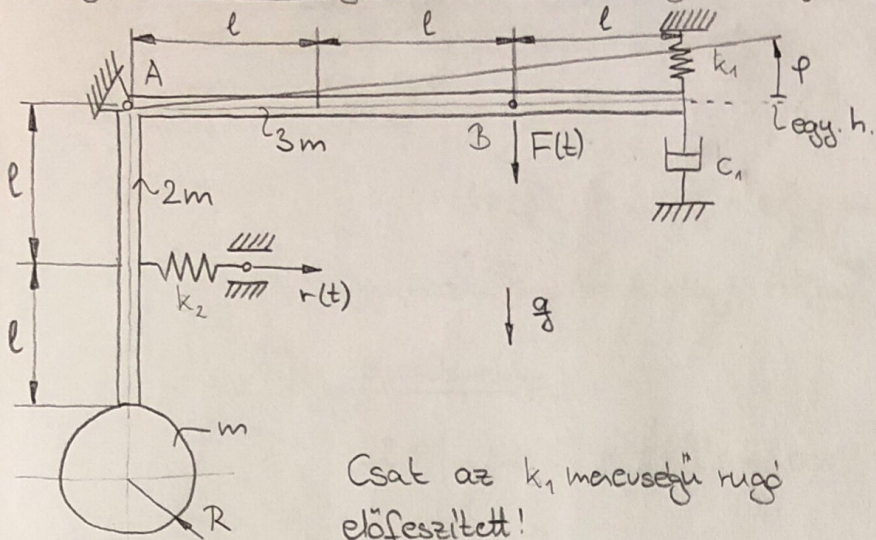 l l l
A
k₁
φ
egy. h.
3m
B
F(t)
c₁
l
2m
k₂
r(t)
g
l
m
R
Csat az k₁ merevségű rugó
előfeszített!